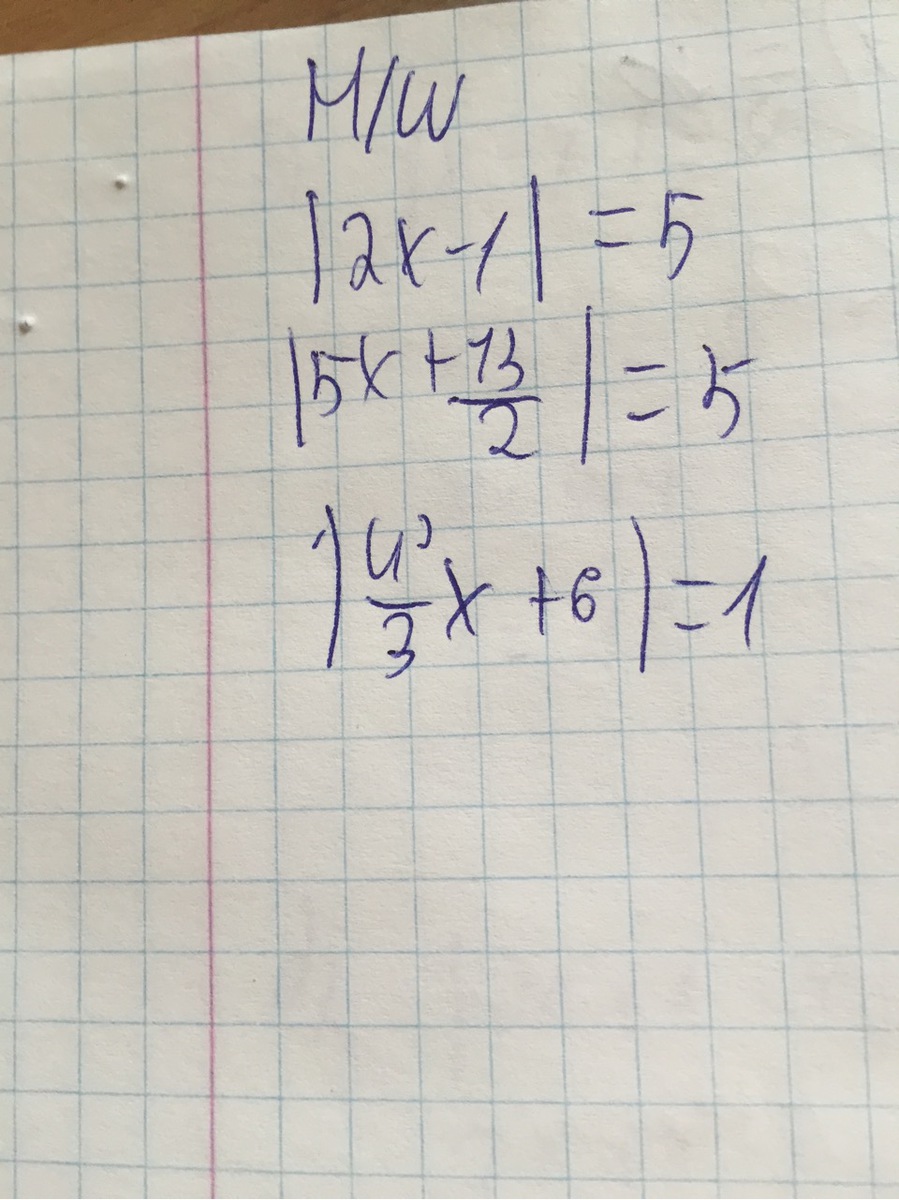 H/W
|2x-1| = 5
|5x + 13/2| = 5
|4/3x + 6| = 1